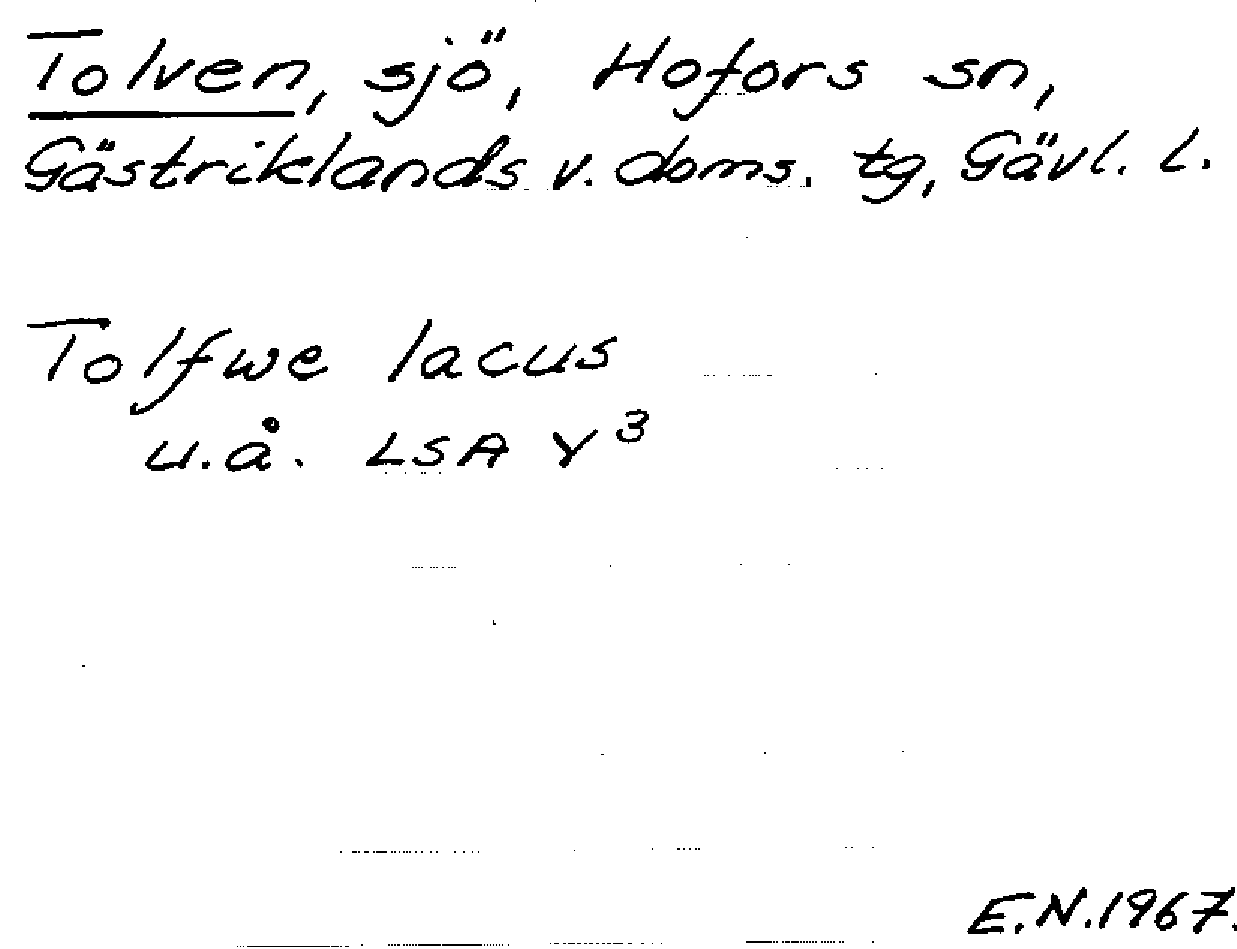 Tolven, sjö, Hofors sn,
Gästriklands v. doms. tg, Gävl. l.
Tolfwe lacus
u.å. LSA Y³
E.N. 1967.